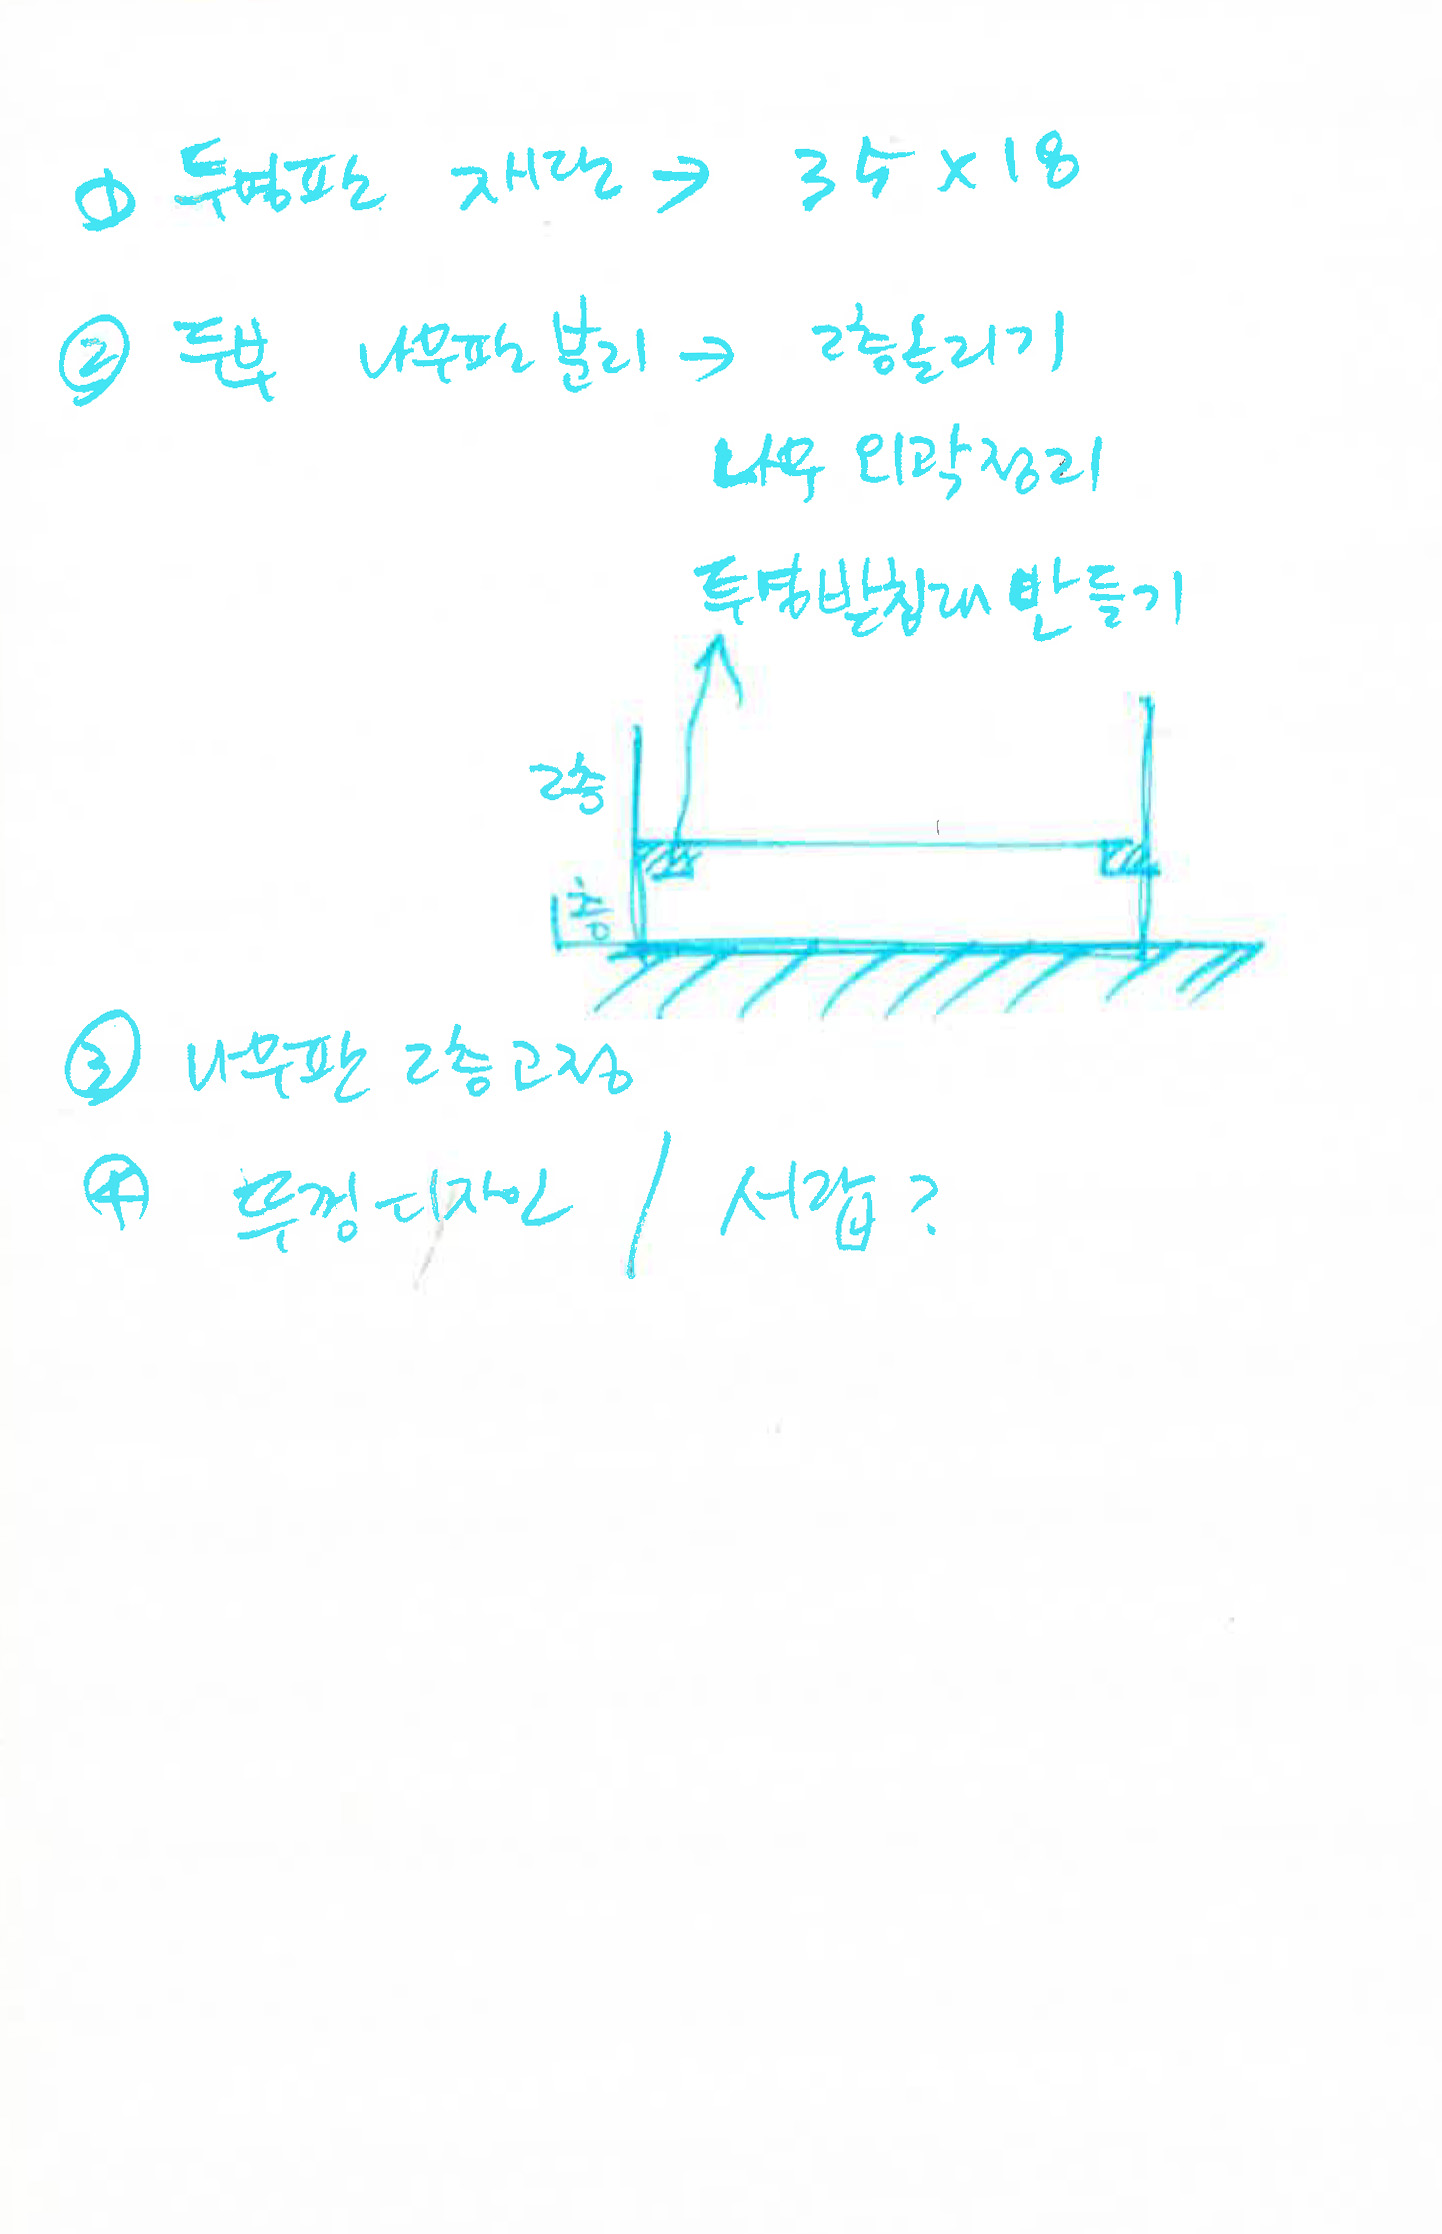 ① 투명판 재단 → 35 x 18
② 두부 나무판 분리 → 2층올리기
나무 외곽정리
투명받침대 만들기
2층
1층
③ 나무판 2층고정
④ 뚜껑디자인 / 서랍?